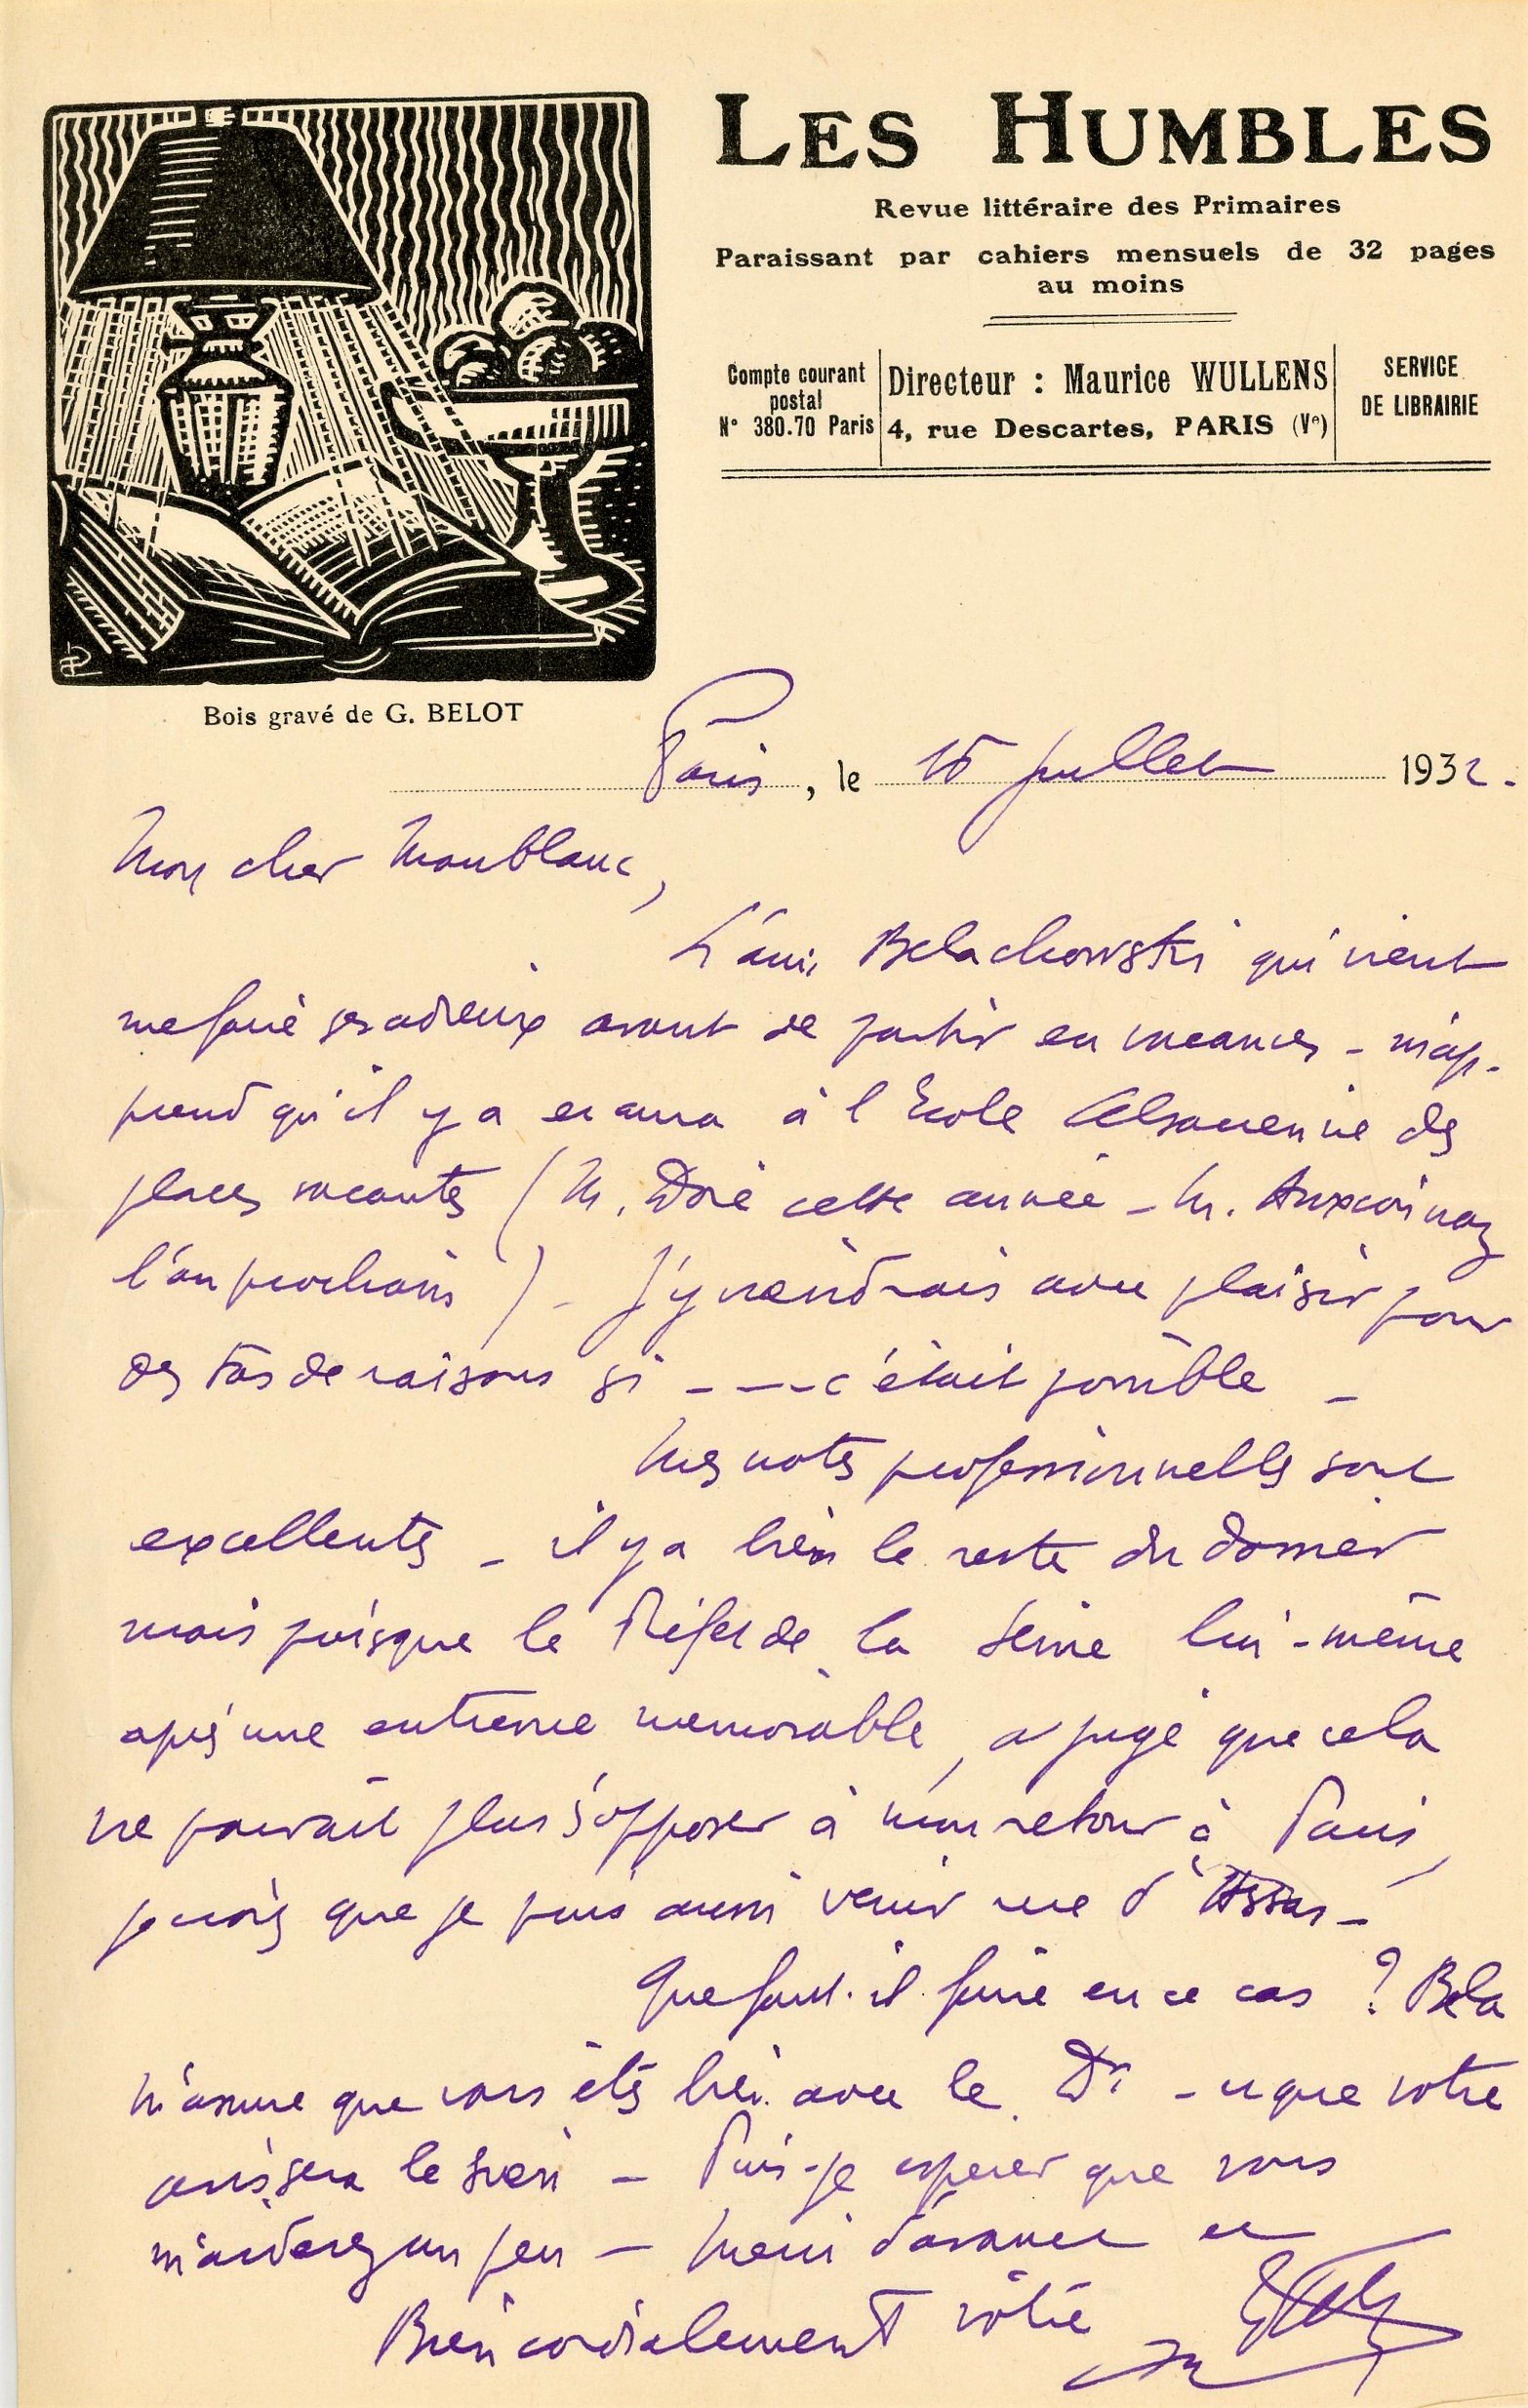 LES HUMBLES
Revue littéraire des Primaires
Paraissant par cahiers mensuels de 32 pages
au moins
Compte courant
postal
N° 380.70 Paris
Directeur : Maurice WULLENS
4, rue Descartes, PARIS (Ve)
SERVICE
DE LIBRAIRIE
Bois gravé de G. BELOT
Paris, le 15 juillet 1932.
Mon cher Maublanc,
L'ami Belachowski qui vient
me faire ses adieux avant de partir en vacances - m'ap-
prend qu'il y a et aura à l'Ecole Alsacienne des
places vacantes (M. Doré cette année - M.
l'an prochain) - J'y viendrais avec plaisir pour
des tas de raisons si - - - c'était possible -
Mes notes professionnelles sont
excellentes - il y a bien le reste du dossier
mais puisque le Préfet de la Seine lui-même
après une entrevue mémorable, a jugé que cela
ne pouvait plus s'opposer à mon retour à Paris,
je crois que je puis aussi venir rue d'Assas -
Que faut-il faire en ce cas ? Bela
m'assure que vous êtes bien avec le Dr - et que votre
avis sera le sien - Puis-je espérer que vous
m'aiderez un peu - Merci d'avance et
Bien cordialement vôtre